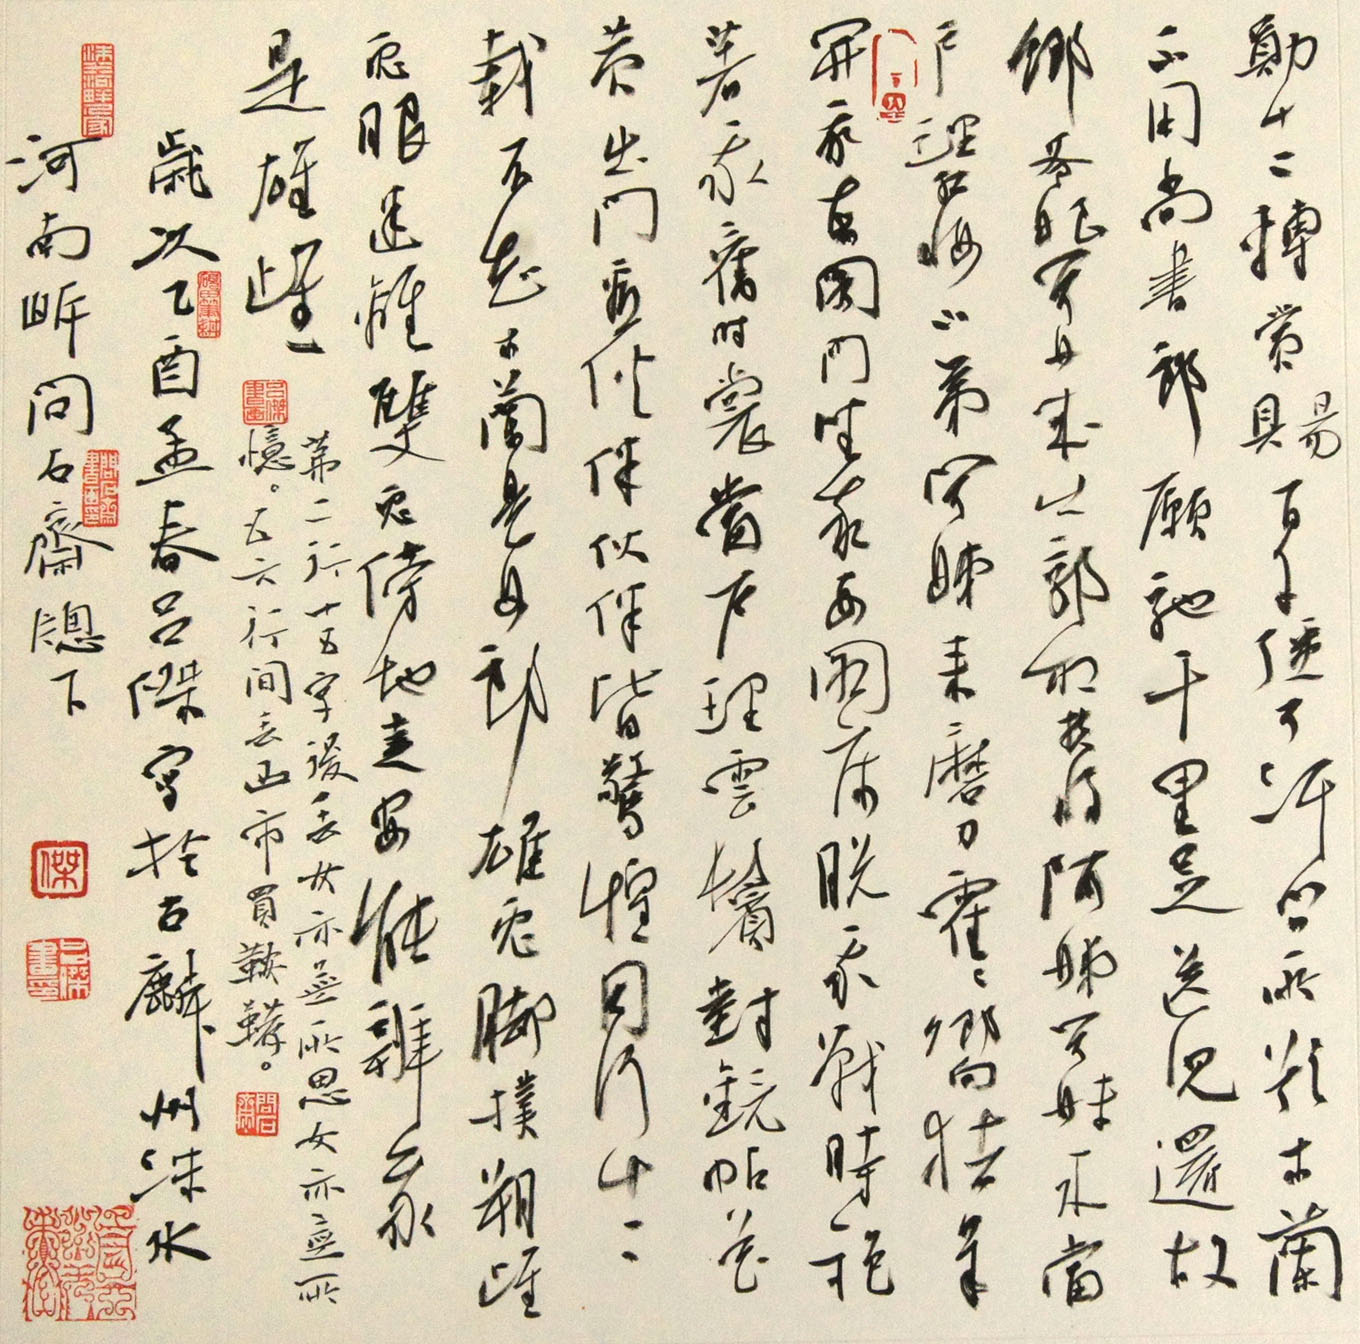 勛十二轉賞賜百千彊可汗問所欲木蘭
不用尚書郎願馳千里足送兒還故
鄉爺娘聞女來出郭相扶將阿姊聞妹來當
戶理紅妝小弟聞姊來磨刀霍〻嚮猪羊
開我東閣門坐我西閣床脫我戰時袍
著我舊時裳當戶理雲鬢對鏡帖花
黃出門看伙伴伙伴皆驚惶同行十二
載不知木蘭是女郎雄兔腳撲朔雌
兔眼迷離雙兔傍地走安能辨我
是雄雌
第二行十五字後丟女亦無所思女亦無所
憶。五六行間丟西市買鞍韉。
歲次乙酉孟春呂傑寫於古麟州洙水
河南岍問石齋牕下
呂傑書畫
問石齋
問石齋書畫印
傑
呂傑書印